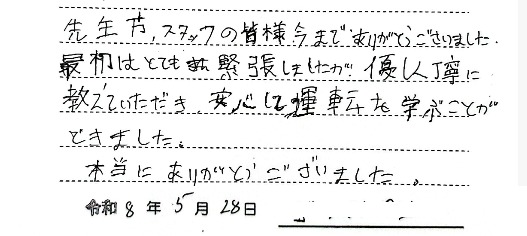 先生方、スタッフの皆様今までありがとうございました。
最初はとても緊張しましたが優しく丁寧に
教えていただき、安心して運転を学ぶことが
できました。
本当にありがとうございました。
令和 8 年 5 月 28 日